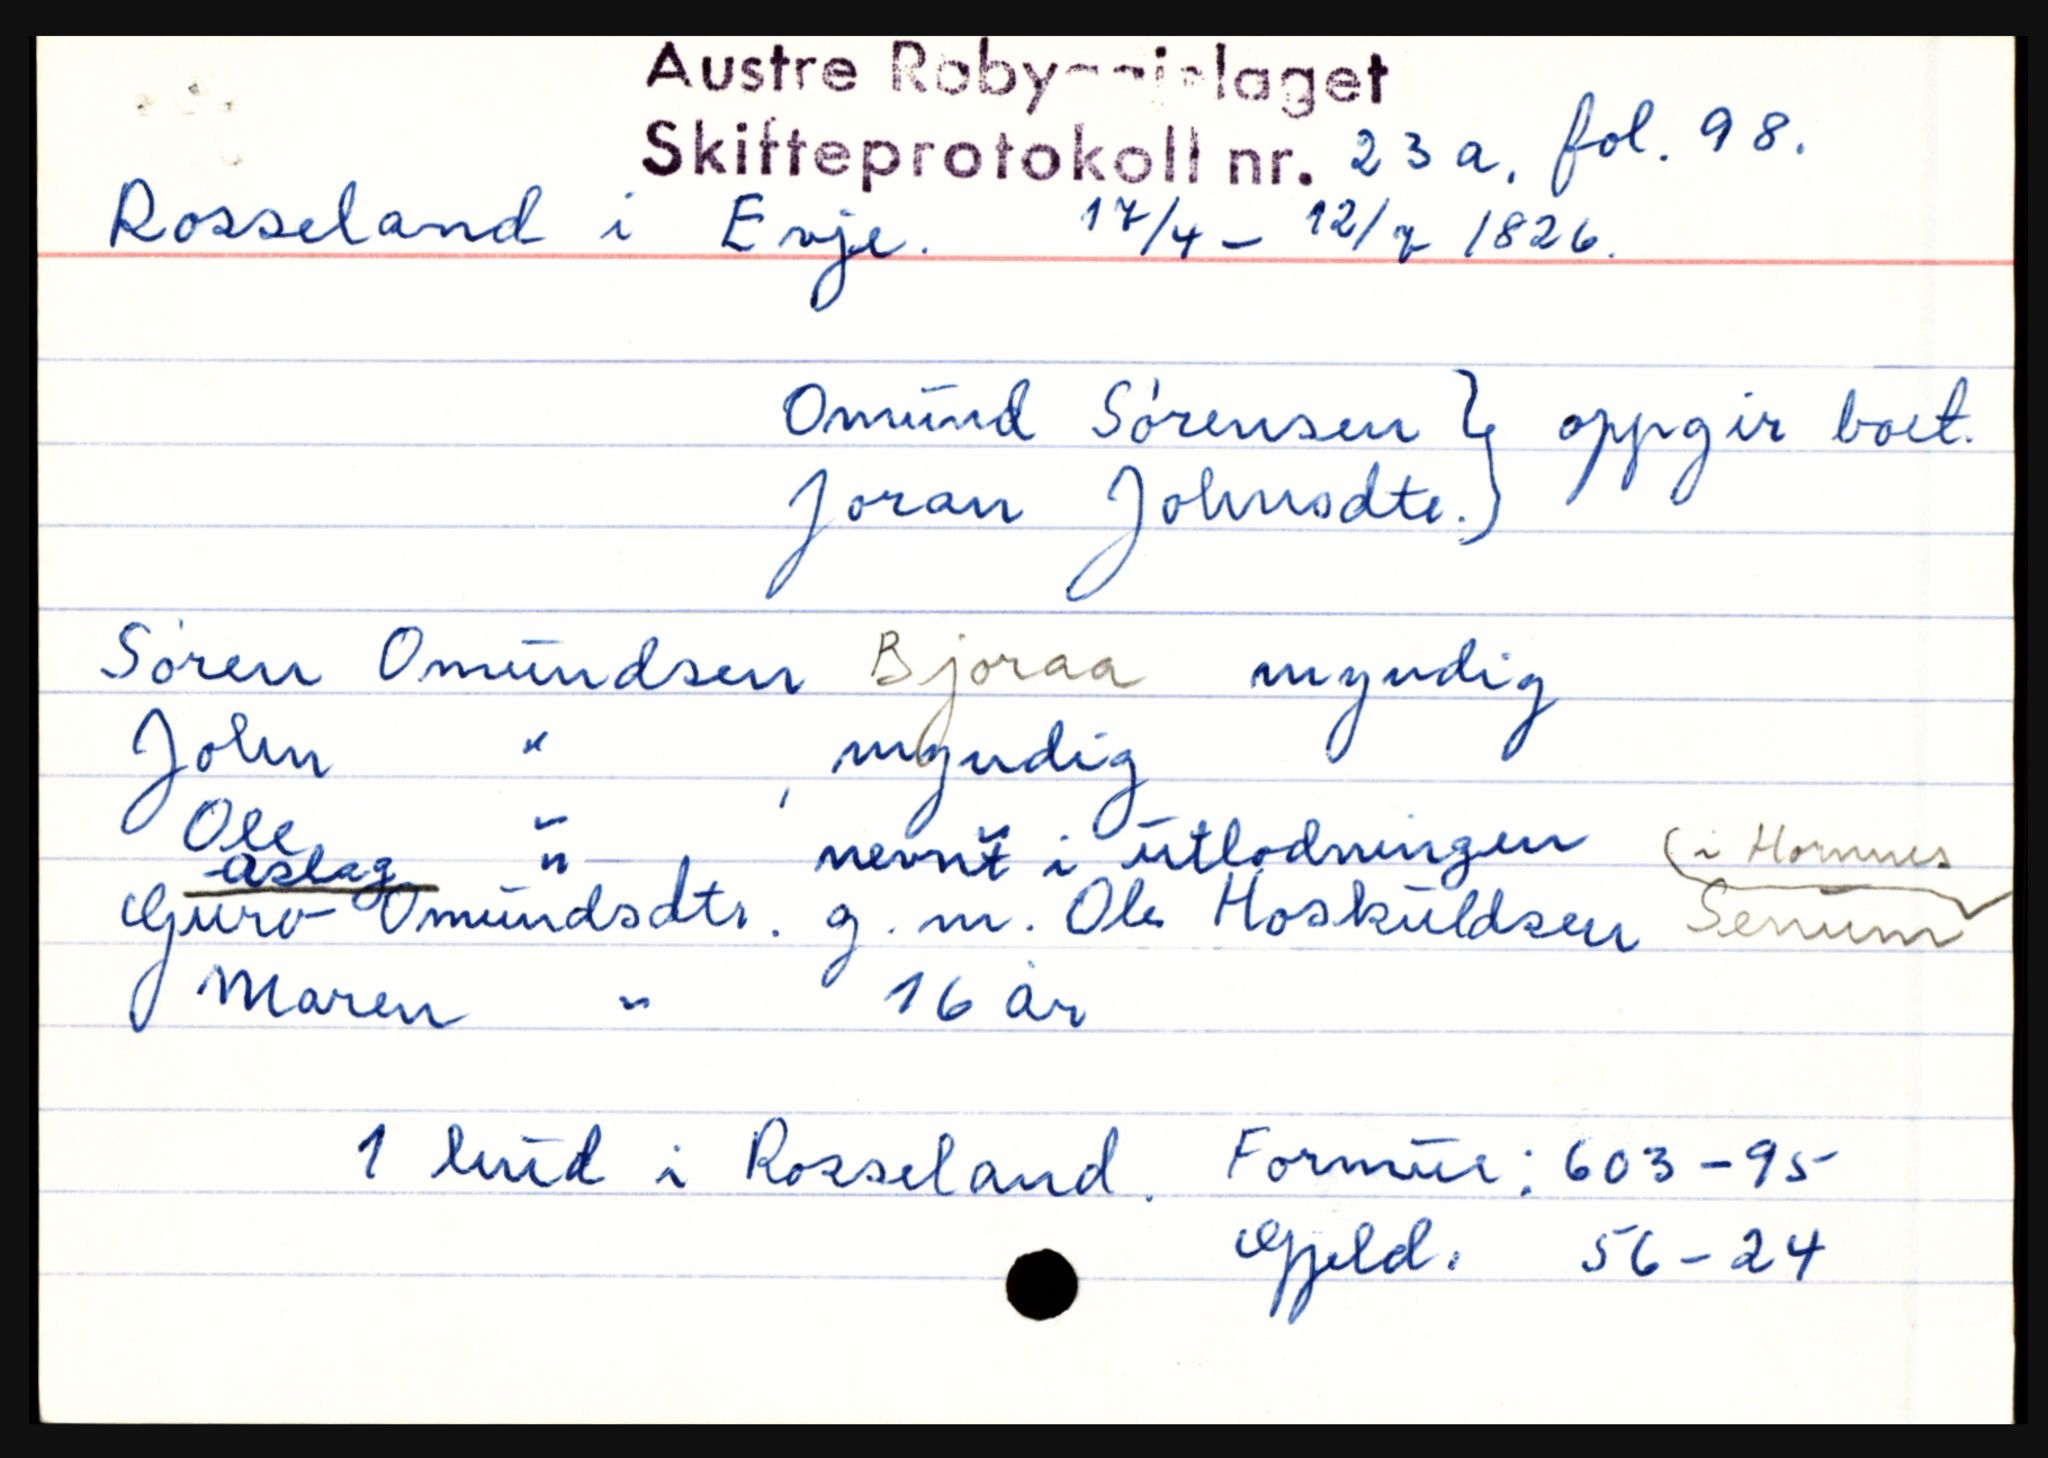 Austre Robyggjelaget
Skifteprotokoll nr. 23a. fol. 98.
Rosseland i Evje. 17/4 - 12/7 1826.
Omund Sörensen } oppgir boet.
Joran Johnsdtr. }
Sören Omundsen Bjoraa myndig
John " myndig
Ole " nevnt i utlodningen (i Hornnes
Aslag "
Guro Omundsdtr. g. m. Ole Hoskuldsen Senum
Maren " 16 år
1 hud i Rosseland. Formue: 603-95
Gjeld. 56-24